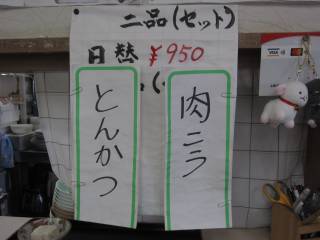 二品(セット)
日替 ¥950
肉ニラ
とんかつ
VISA